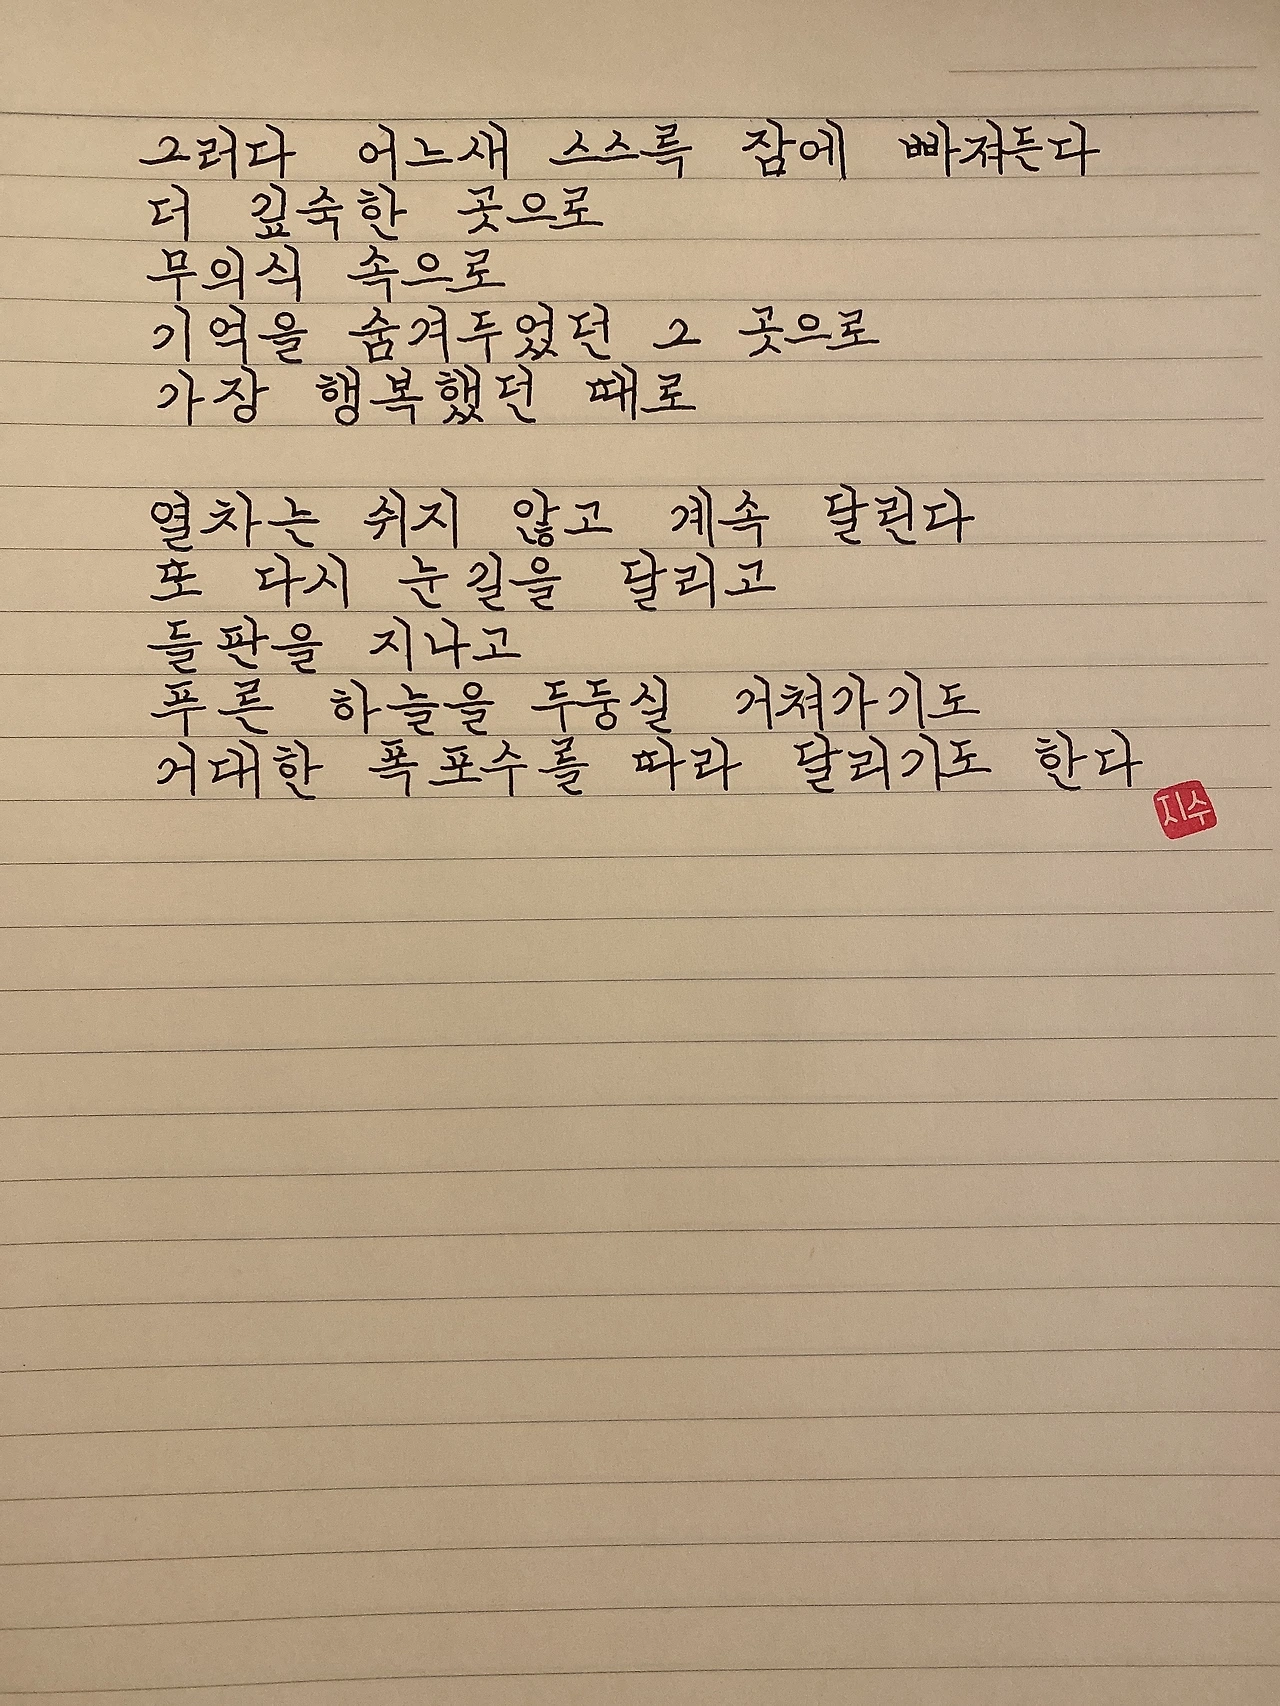 그러다 어느새 스스륵 잠에 빠져든다
더 깊숙한 곳으로
무의식 속으로
기억을 숨겨두었던 그 곳으로
가장 행복했던 때로
열차는 쉬지 않고 계속 달린다
또 다시 눈길을 달리고
들판을 지나고
푸른 하늘을 두둥실 거쳐가기도
거대한 폭포수를 따라 달리기도 한다
지수